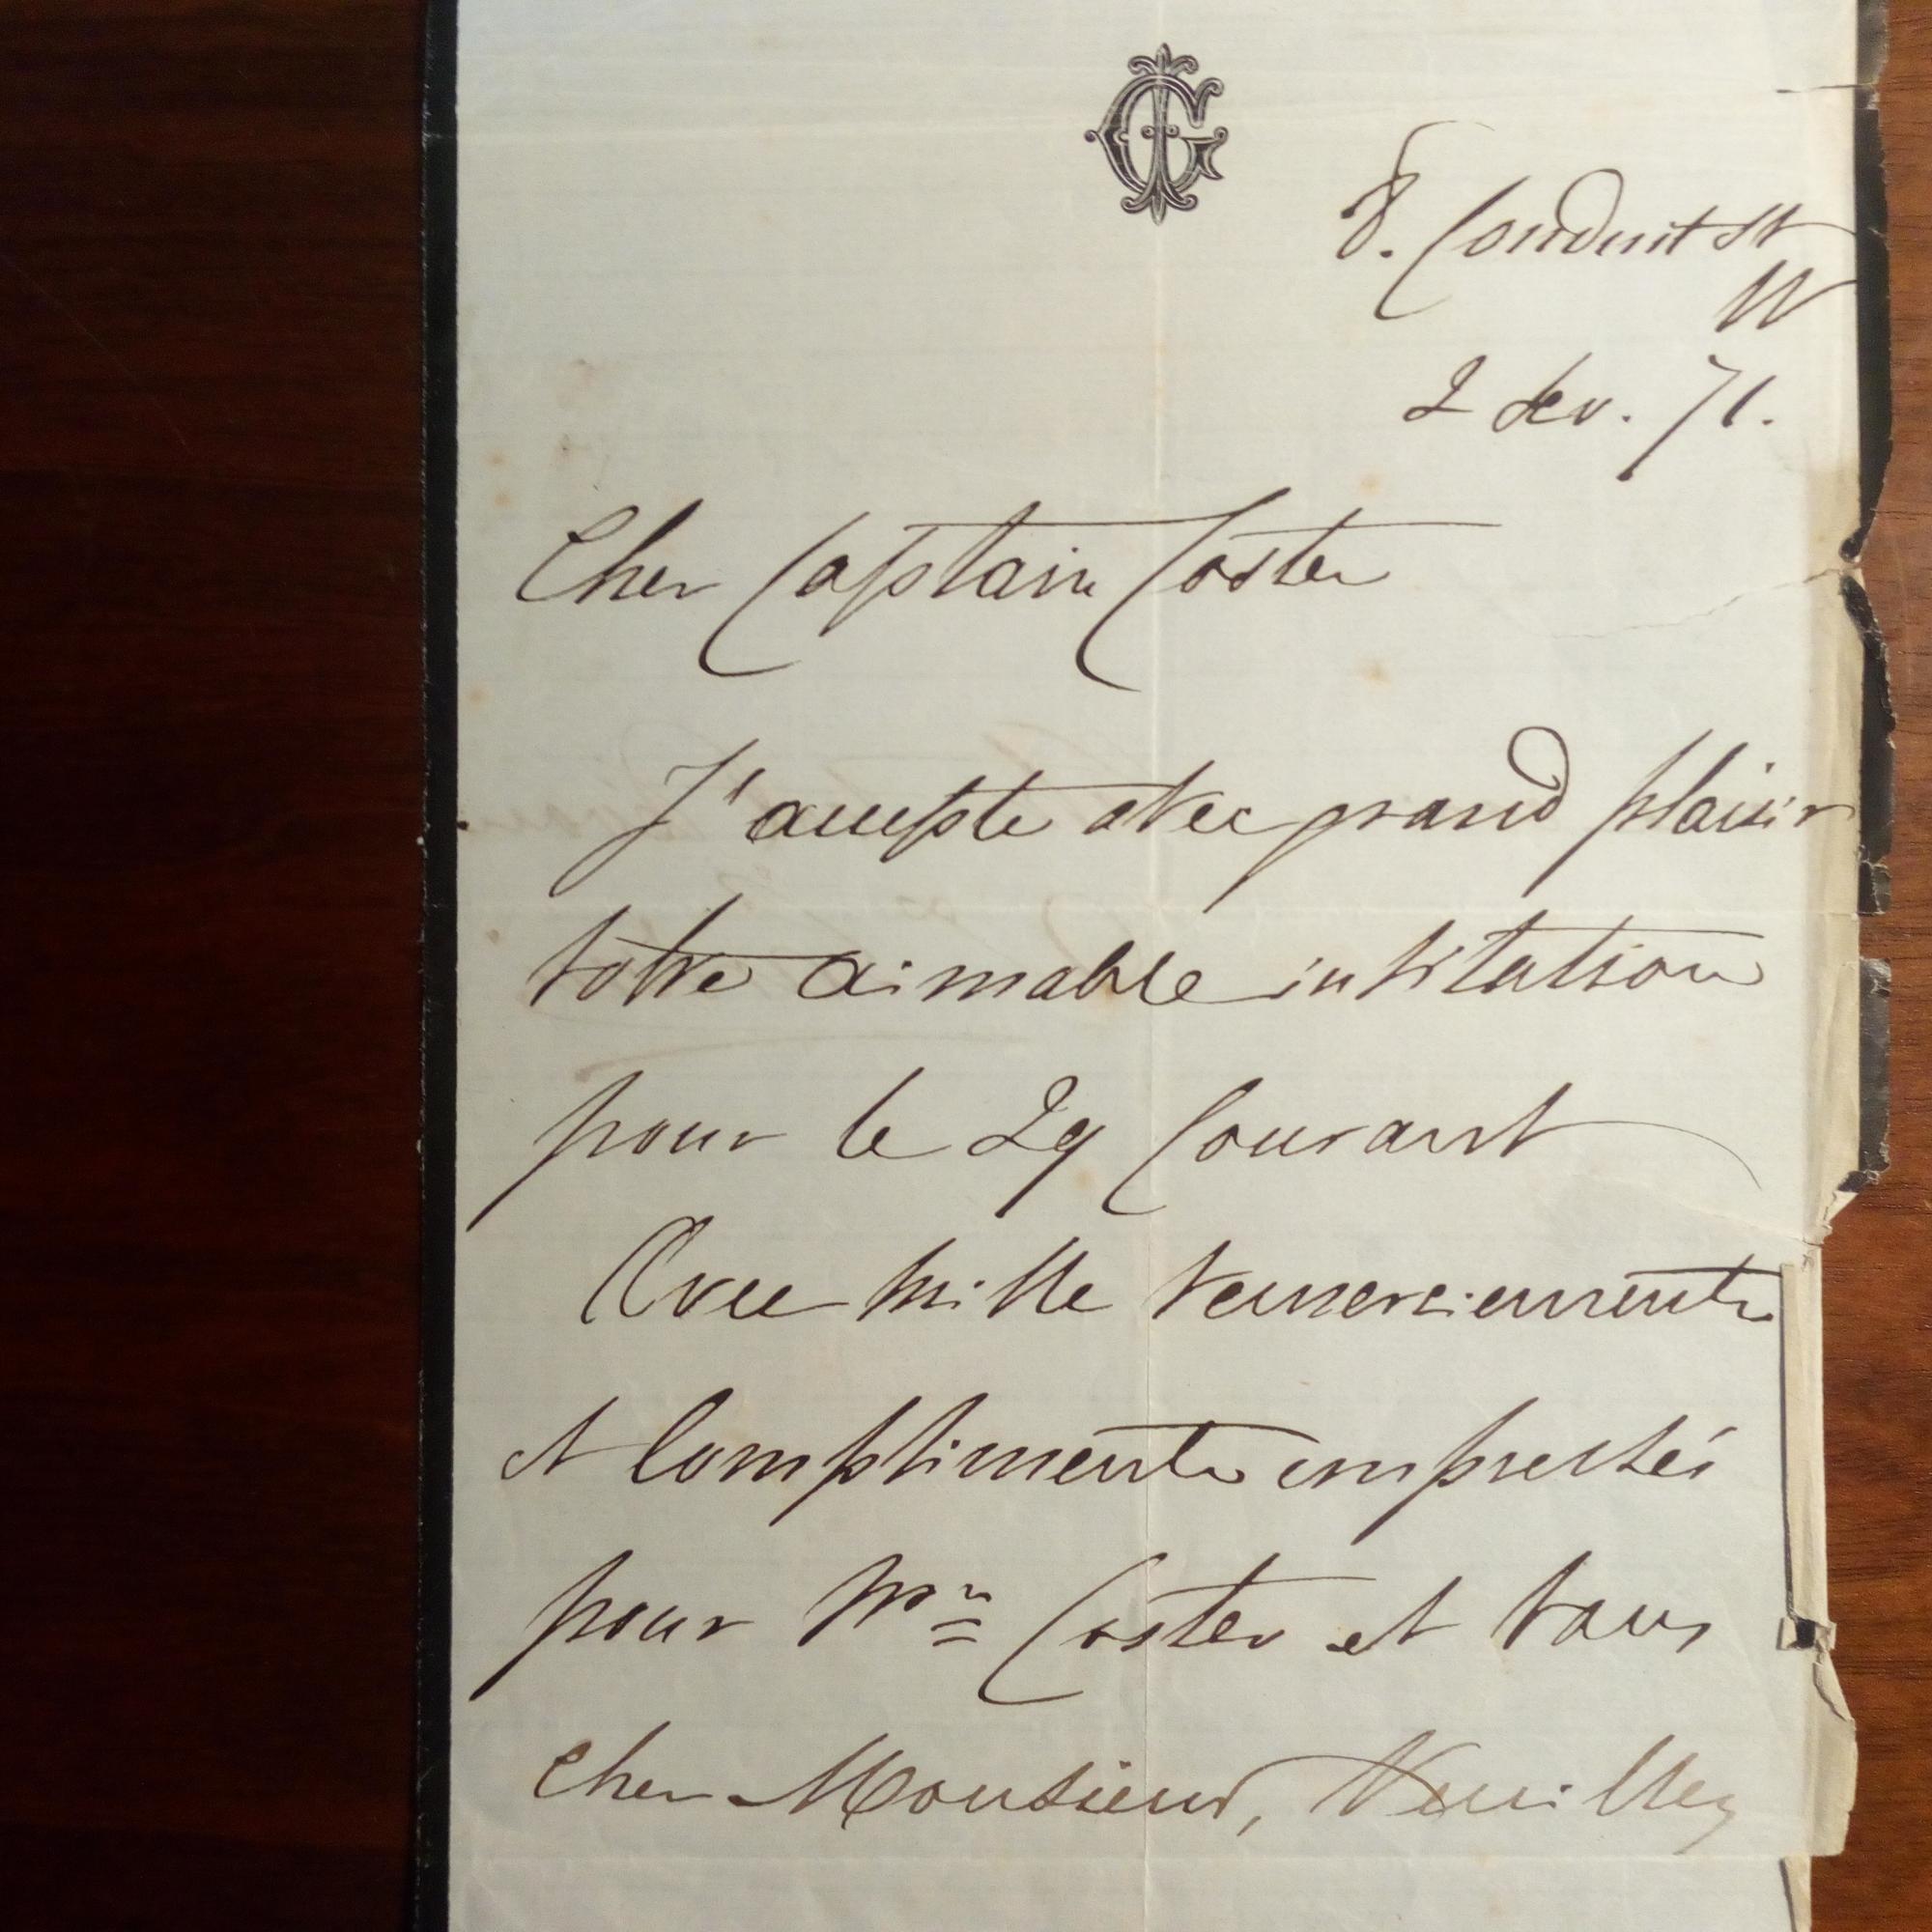 8. Conduit St
W
2 Fev. 71.
Cher Captain Coster
J'accepte avec grand plaisir
votre aimable invitation
pour le 29 Courant
Avec mille remerciements
et Compliments empressés
pour Mrs Coster et vous
Cher Monsieur, Veuillez